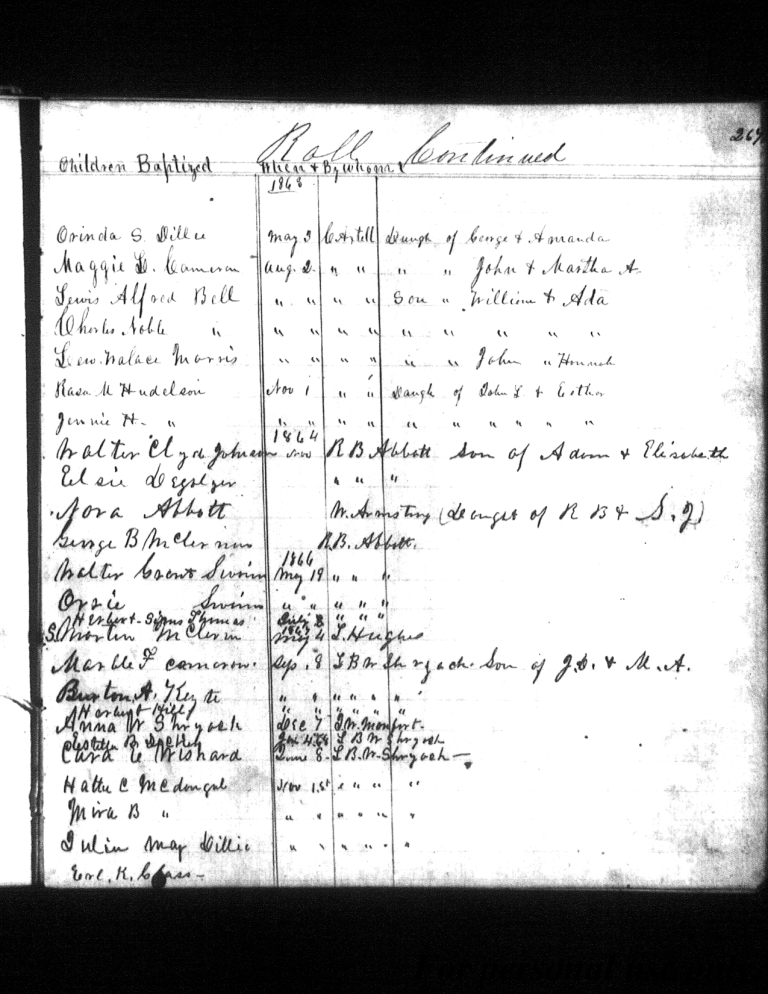 267
Roll Continued
Children Baptized When & By whom
1863
Orinda S. Dillie May 3 C Axtell Daugh of George & Amanda
Maggie D. Cameron Aug. 2 " " " " John & Martha A.
Lewis Alfred Bell " " " " Son " William & Ada
Charles Noble " " " " " " " " " "
Lew. Walace Morris " " " " " " John " Hannah
Rasa M Hudelson Nov 1 " " Daugh of John L & Esther
Jennie H. " " " " " " " " " " "
1864
Walter Clyde Johnson Nov R B Abbott Son of Adam & Elizabeth
Elsie " " "
Nora Abbott W. Armstrong (Daughter of R B & S. J)
George B McClennin R.B. Abbott.
1866
Walter Swinn May 19 " " "
Orsie Swinn " " " " "
Herbert Thomas July 8 " " "
S. Morton McClevin May 4 L. Hughes
Marble F Cameron. Sep. 8 L B W Shryock. Son of J. D. & M. A.
Burton A. " " " " " "
Herbert Hill " " " " " "
Anna W Shryock Dec 7 I. W. Monfort.
Estella B L B W Shryock
Clara C Wishard June 8. L. B. W. Shryock —
Hattie C McDougal Nov 1st " " " "
Mira B " " " " " " "
Julia May Dillie " " " " " "
Erl. K. Class -